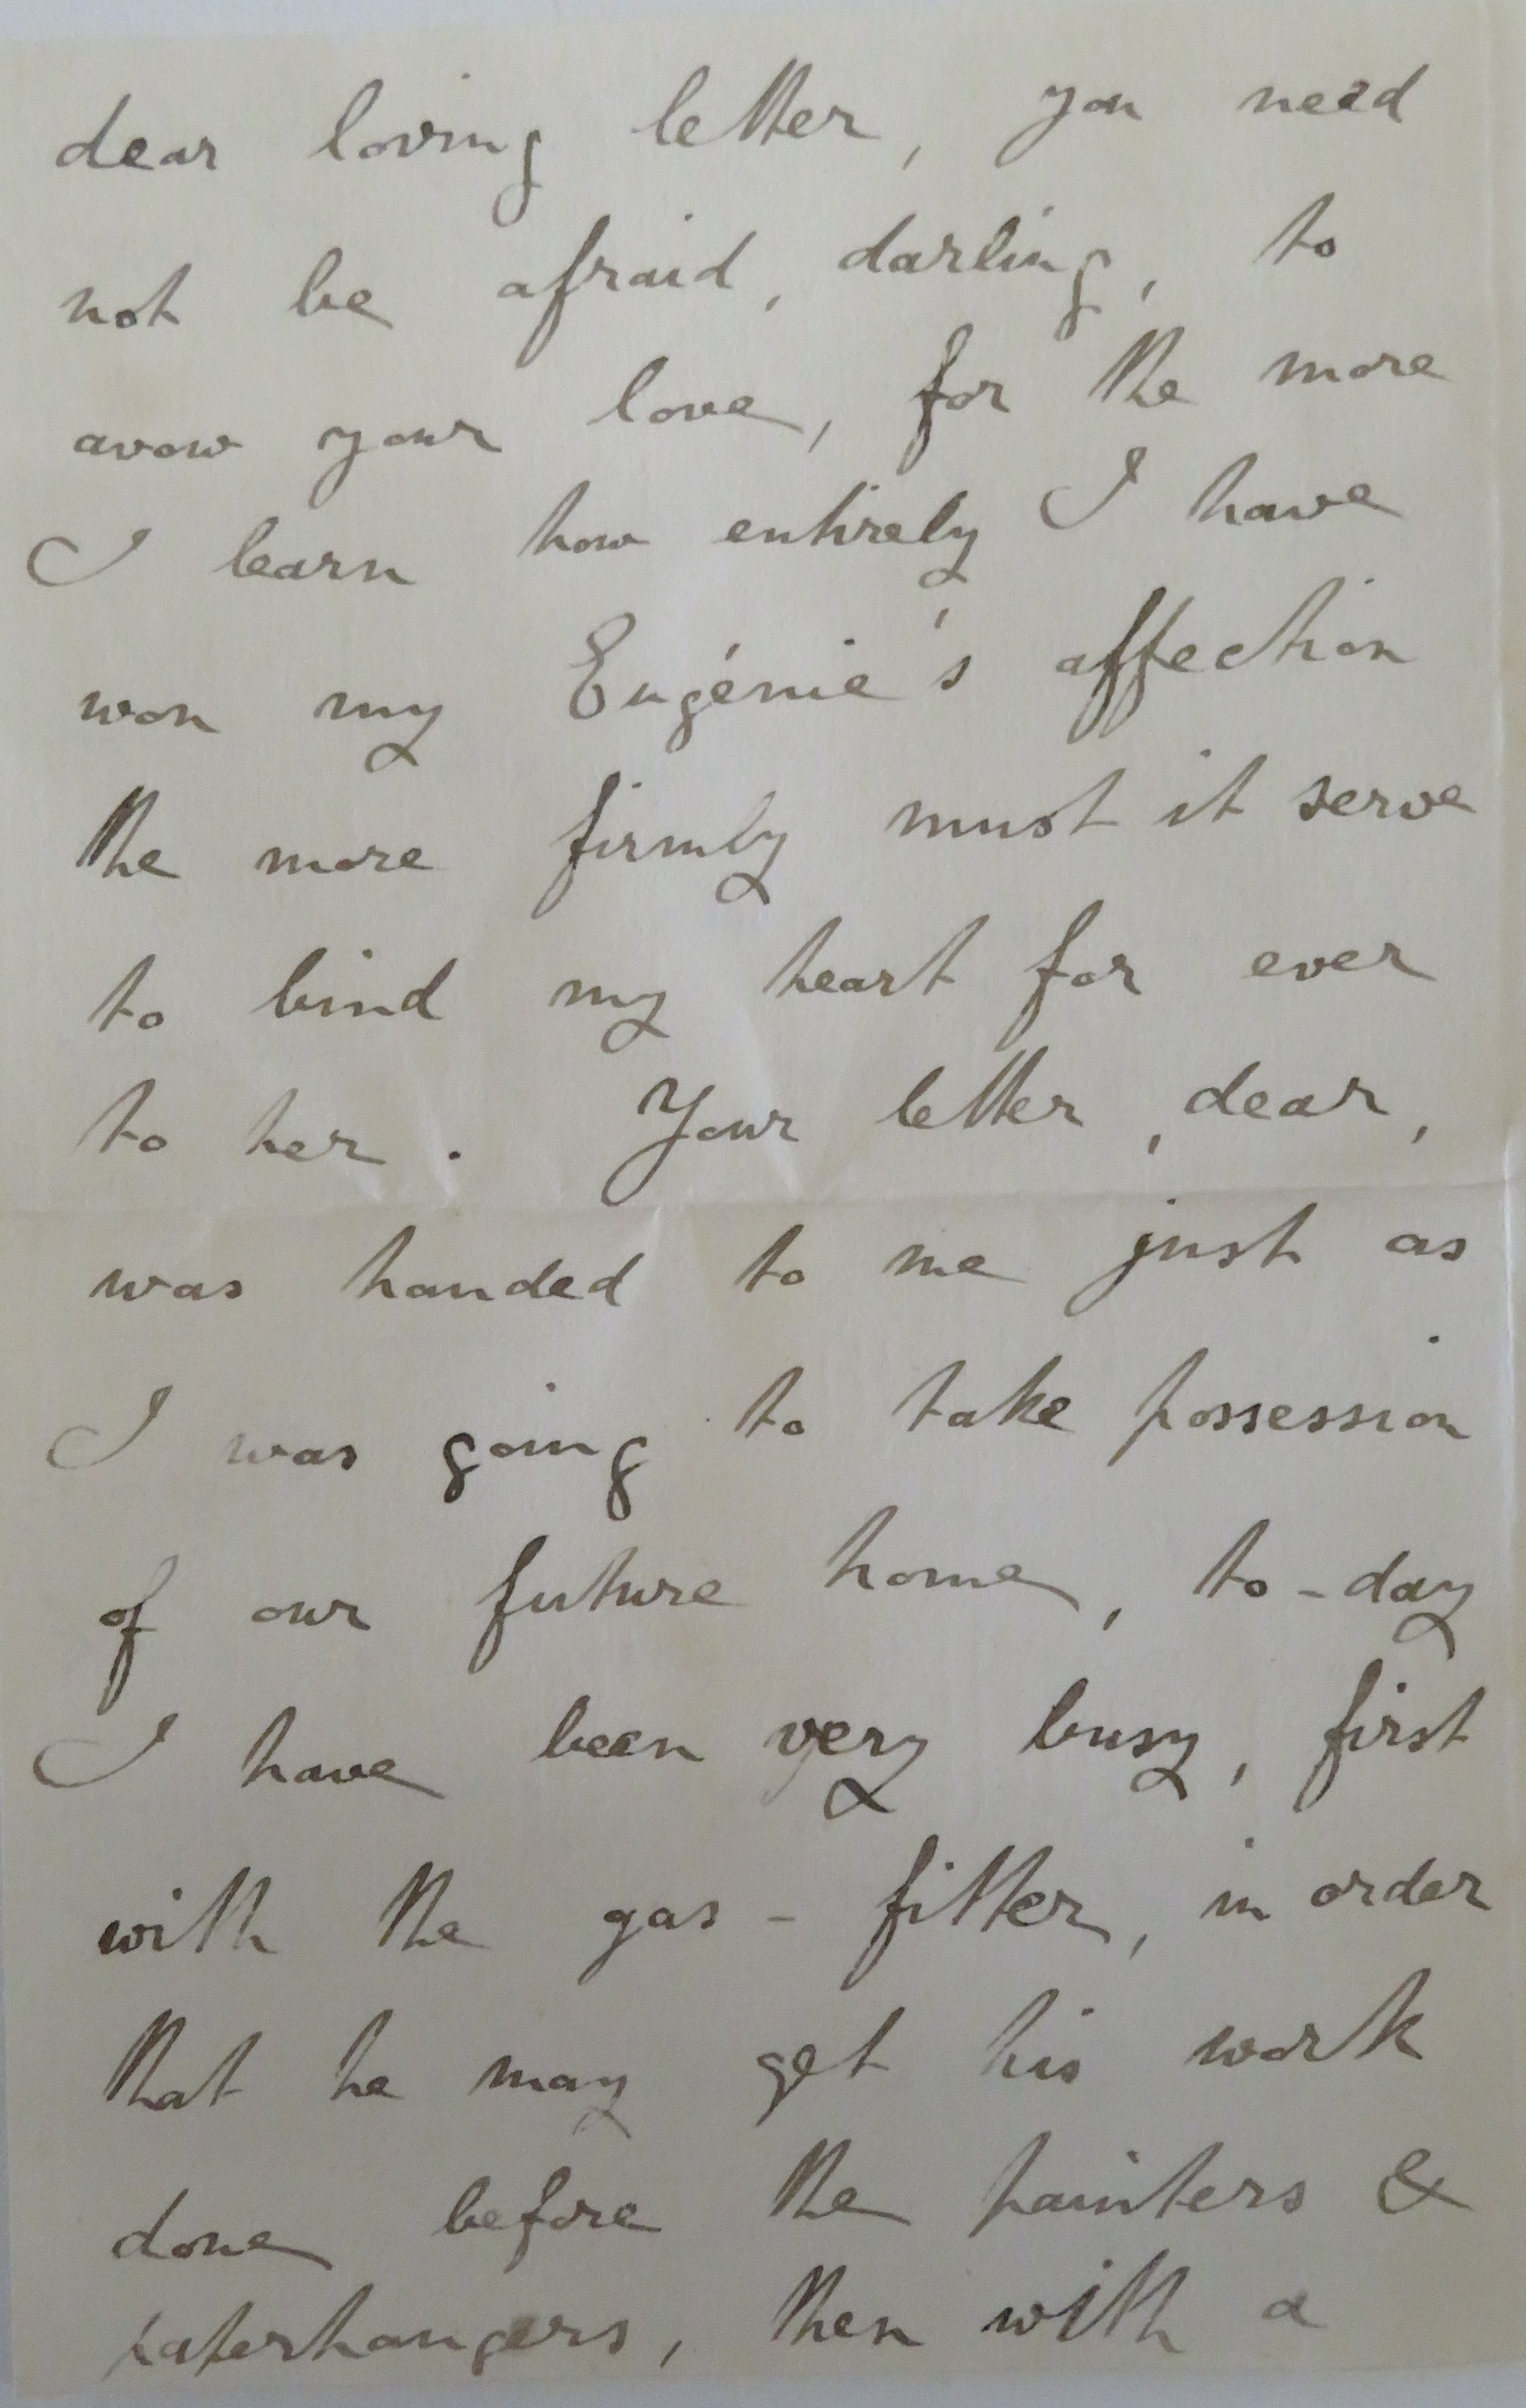 dear loving letter, you need
not be afraid, darling, to
avow your love, for the more
I learn how entirely I have
won my Eugénie's affection
the more firmly must it serve
to bind my heart for ever
to her. Your letter, dear,
was handed to me just as
I was going to take possession
of our future home, to-day
I have been very busy, first
with the gas-fitter, in order
that he may get his work
done before the painters &
paperhangers, then with a